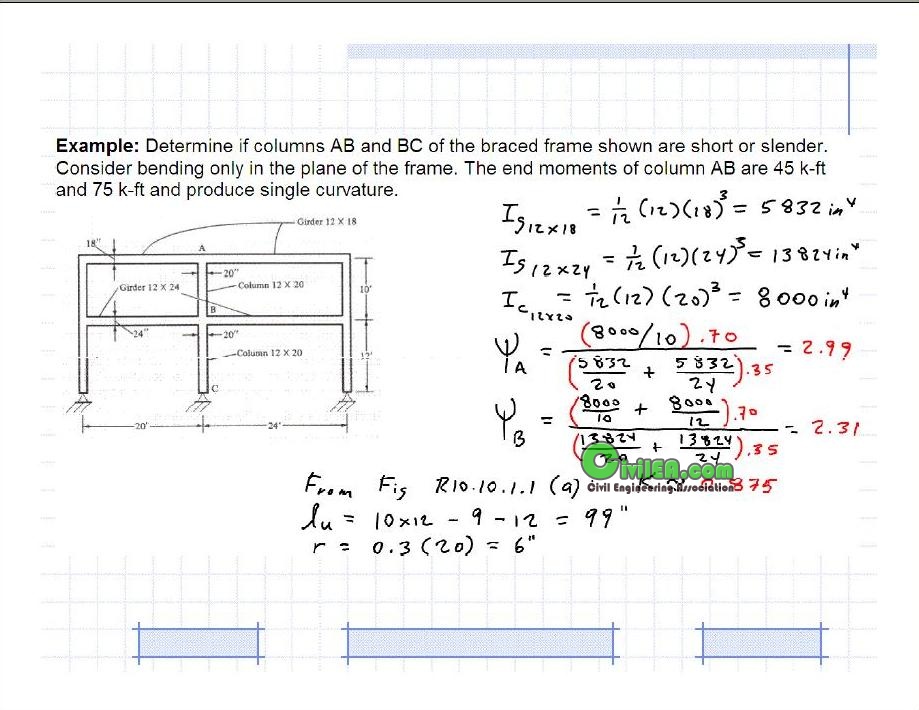 Example: Determine if columns AB and BC of the braced frame shown are short or slender.
Consider bending only in the plane of the frame. The end moments of column AB are 45 k-ft
and 75 k-ft and produce single curvature.
Girder 12 X 18
18"
A
20"
Girder 12 X 24
Column 12 X 20
10'
B
24"
20"
Column 12 X 20
12'
C
20'
24'
Ig12x18 = 1/12 (12)(18)³ = 5832 in⁴
Ig12x24 = 1/12 (12)(24)³ = 13824 in⁴
Ic12x20 = 1/12 (12)(20)³ = 8000 in⁴
ΨA = (8000/10).70 / (5832/20 + 5832/24).35 = 2.99
ΨB = (8000/10 + 8000/12).70 / (13824/20 + 13824/24).35 = 2.31
CivilEA.com
Civil Engineering Association
From Fig R10.10.1.1 (a) K ≈ 0.875
lu = 10x12 - 9 - 12 = 99"
r = 0.3(20) = 6"